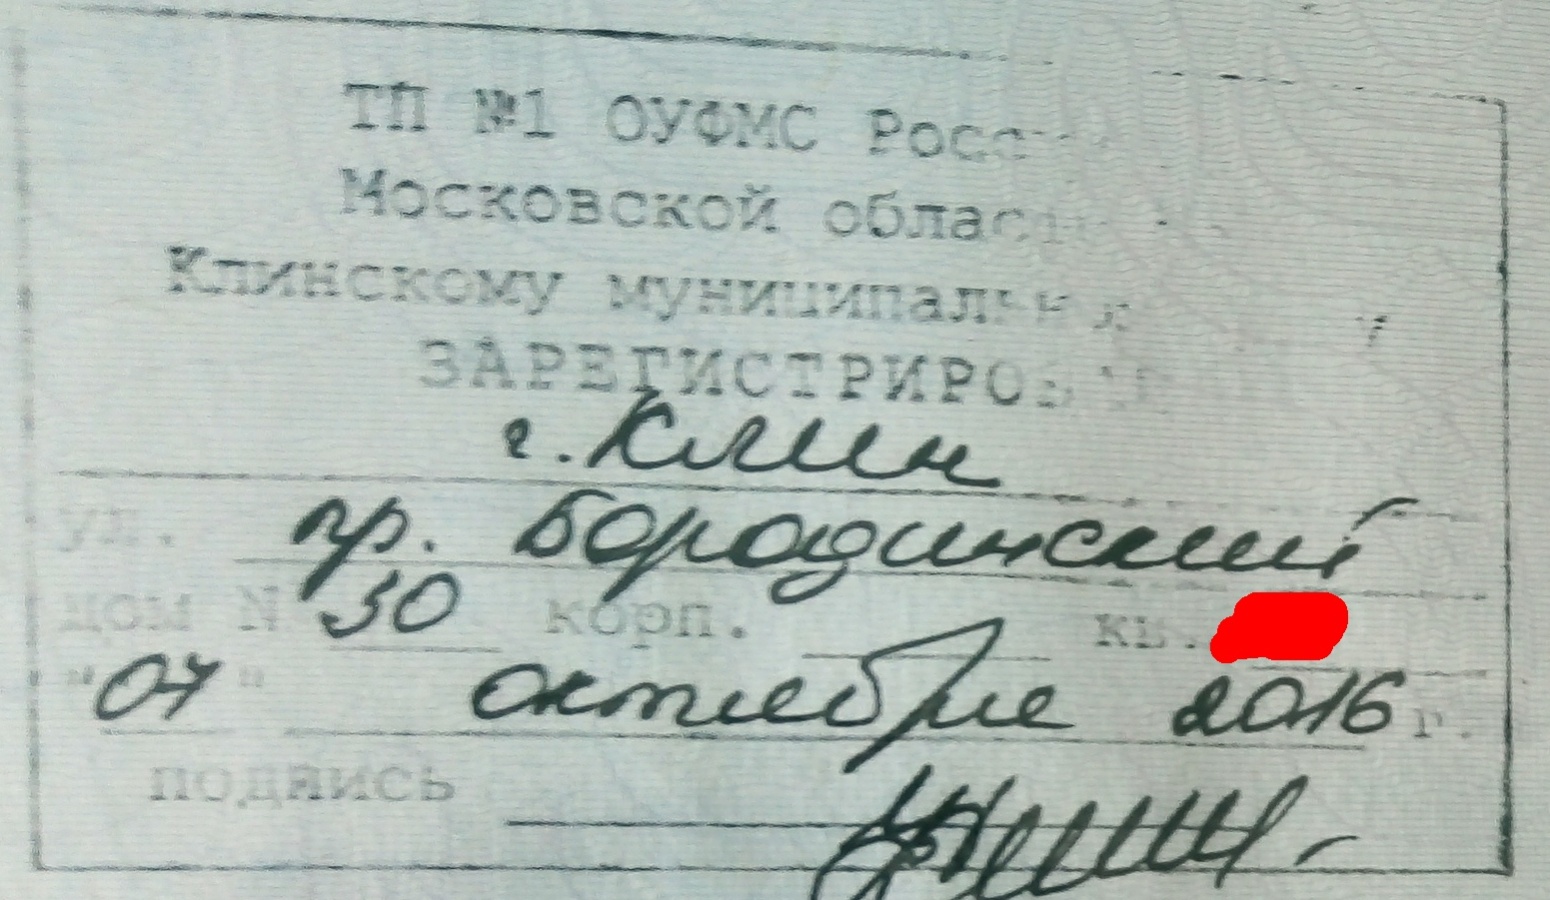 ТП №1 ОУФМС Росс
Московской облас
Клинскому муниципальн
ЗАРЕГИСТРИРОВАН
г. Клин
ул. пр. Бородинский
дом № 30 корп. кв.
"07" октября 2016 г.
подпись